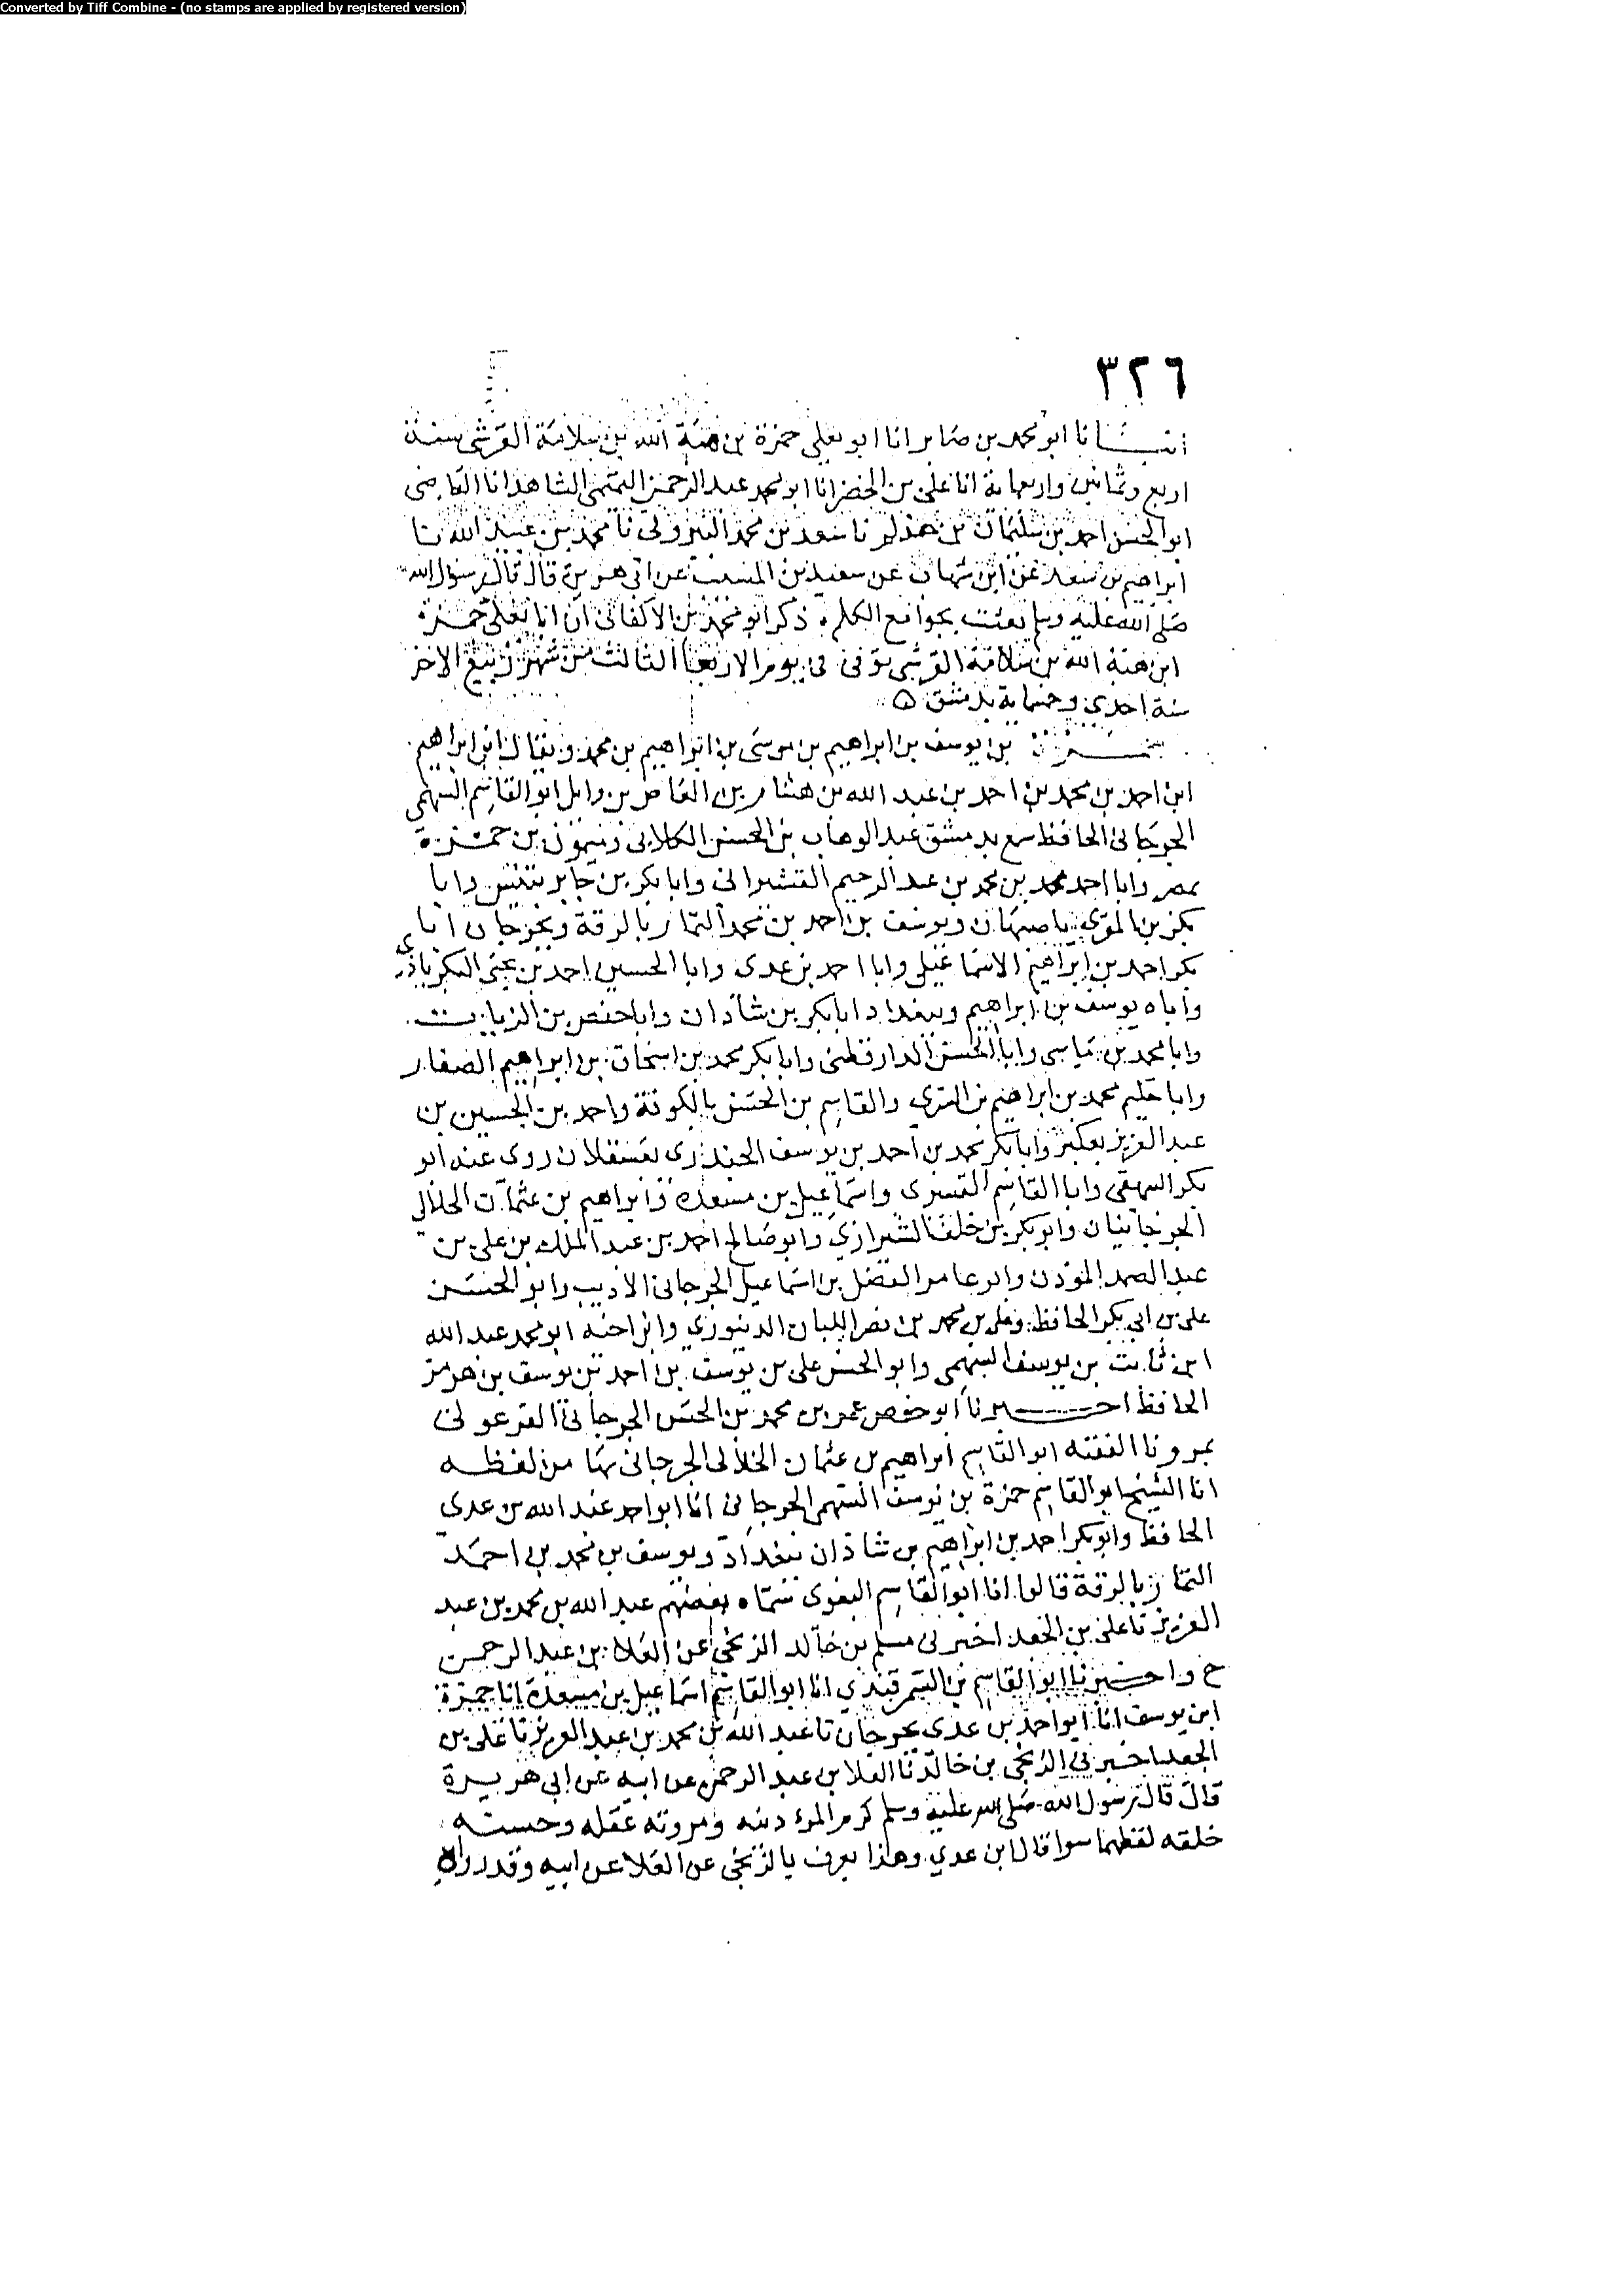 Converted by Tiff Combine - (no stamps are applied by registered version)
٣٢٦
انبانا ابو محمد بن صابر انا ابو يعلى حمزة بن هبة الله بن سلامة القرشى سنة
اربع وثمانين واربعماية انا على بن الخضر انا ابو محمد عبد الرحمن التميمى الشاهد انا القاضى
ابو الحسن احمد بن سليمان بن حذلم نا سعد بن محمد البيروتى نا محمد بن عبيد الله نا
ابراهيم بن سعد عن ابن شهاب عن سعيد بن المسيب عن ابى هريرة قال قال رسول الله
صلى الله عليه وسلم بعثت بجوامع الكلم ذكر ابو محمد بن الاكفانى ان ابا يعلى حمزة
ابن هبة الله بن سلامة القرشى توفى فى يوم الاربعا الثالث من شهر ربيع الاخر
سنة احدى وخمسماية بدمشق ٥
حمزة بن يوسف بن ابراهيم بن موسى بن ابراهيم بن محمد ويقال ابن ابراهيم
ابن احمد بن محمد بن احمد بن عبد الله بن هشام بن العاص بن وايل ابو القاسم السهمى
الجرجانى الحافظ سمع بدمشق عبد الوهاب بن الحسن الكلابى وميمون بن حمزة
بمصر وابا احمد محمد بن محمد بن عبد الرحيم القيسرانى وابا بكر بن جابر بتنيس وابا
بكر بن المقرى باصبهان ويوسف بن احمد بن محمد التمار بالرقة وبجرجان ابا
بكر احمد بن ابراهيم الاسماعيلى وابا احمد بن عدى وابا الحسين احمد بن يحيى البكراباذى
واباه يوسف بن ابراهيم وببغداد ابا بكر بن شاذان وابا حفص بن الزيات
وابا محمد بن ماسى وابا الحسن الدارقطنى وابا بكر محمد بن اسحاق بن ابراهيم الصفار
وابا محمد بن ابراهيم بن والقاسم بن الحسن بالكوفة واحمد بن الحسين بن
عبد العزيز بعكبرا وابا بكر محمد بن احمد بن يوسف الجندرى بعسقلان روى عنه ابو
بكر البيهقى وابا القاسم القشيرى واسماعيل بن مسعدة وابراهيم بن عثمان الخلالى
الجرجانيان وابو بكر بن خلف الشيرازى وابو صالح احمد بن عبد الملك بن على بن
عبد الصمد المؤذن وابو عامر الفضل بن اسماعيل الجرجانى الاديب وابو الحسن
على بن ابى بكر الحافظ وعلى بن محمد بن نصر اللبان الدينورى وابن اخته ابو محمد عبد الله
ابن ثابت بن يوسف السهمى وابو الحسن على بن يوسف بن احمد بن يوسف بن هرمز
الحافظ اخبرنا ابو حفص عمر بن محمد بن الحسن الجرجانى الفرغولى
بمرو نا الفقيه ابو القاسم ابراهيم بن عثمان الخلالى الجرجانى بها من لفظه
انا الشيخ ابو القاسم حمزة بن يوسف السهمى الجرجانى انا ابو احمد عبد الله بن عدى
الحافظ وابو بكر احمد بن ابراهيم بن شاذان ببغداد ويوسف بن محمد بن احمد
التمار بالرقة قالوا انا ابو القاسم البغوى سماه بعضهم عبد الله بن محمد بن عبد
العزيز نا على بن الجعد اخبرنى مسلم بن خالد الزنجى عن العلا بن عبد الرحمن
ح واخبرنا ابو القاسم بن السمرقندى انا ابو القاسم اسماعيل بن مسعدة انا حمزة
ابن يوسف انا ابو احمد بن عدى بجرجان نا عبد الله بن محمد بن عبد العزيز نا على بن
الجعد اخبرنى الزنجى بن خالد نا العلا بن عبد الرحمن عن ابيه عن ابى هريرة
قال قال رسول الله صلى الله عليه وسلم كرم المرء دينه ومروته عقله وحسبه
خلقه لفظهما سوا قال ابن عدى وهذا يعرف بالزنجى عن العلا عن ابيه وقد رواه